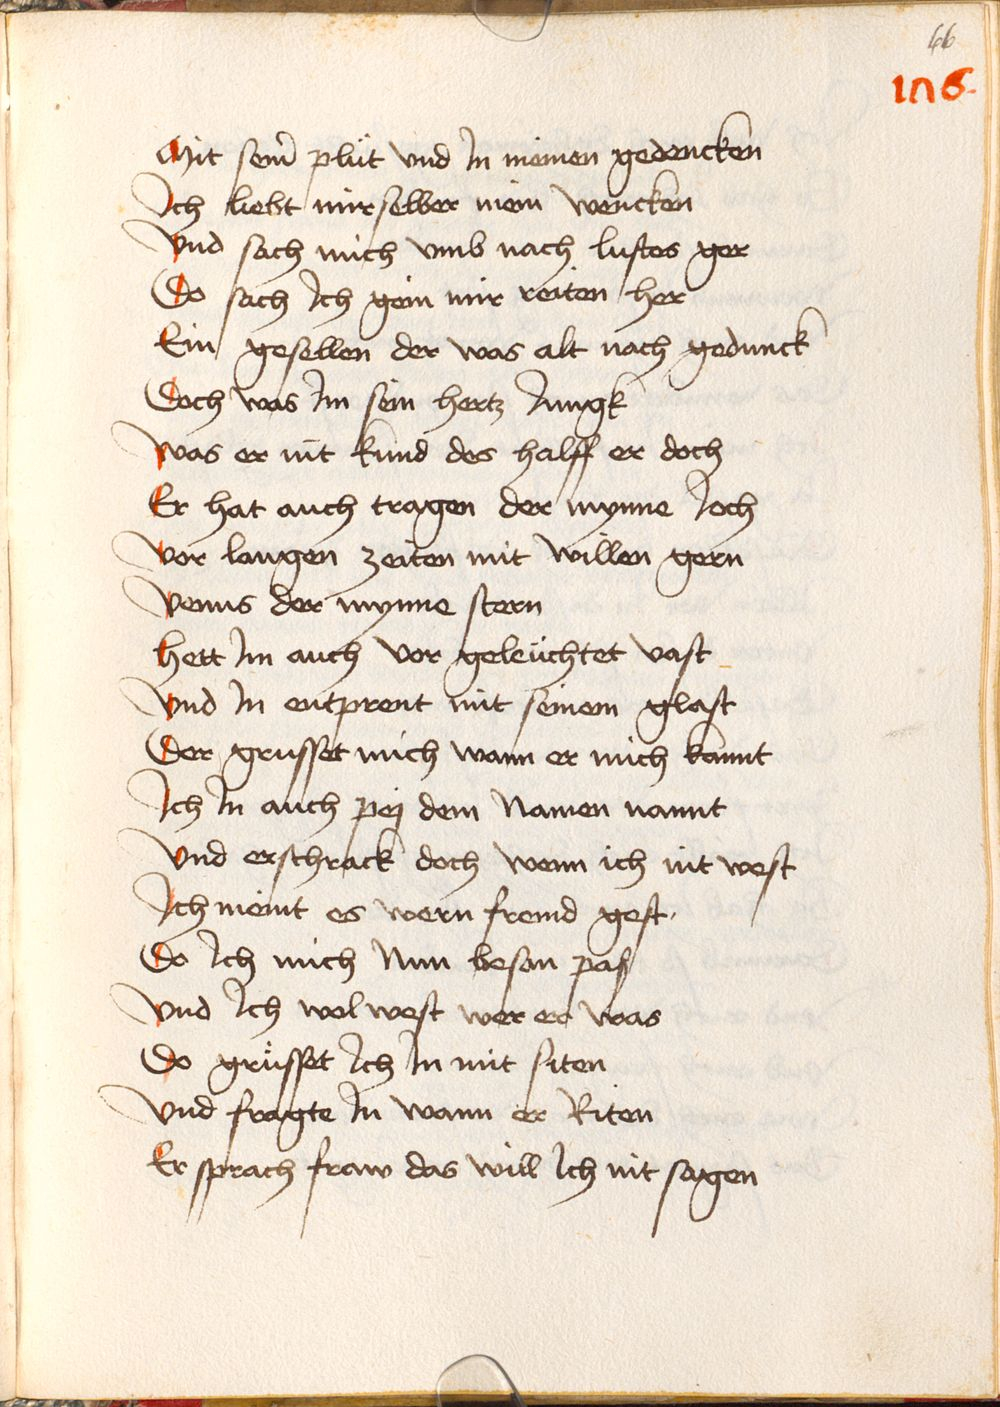 66
106
Mit sein̄ plüt vnd In meinen gedencken
Ich liebt mir selber mein wencken
Vnd sach mich vmb nach lustes ger
Do sach Ich gein mir reiten her
Ein gesellen der was alt nach gedunck
Doch was Im sein hertz Jungk
Was er nit kund des halff er doch
Er hat auch tragen der mynne Joch
Vor langen zeiten mit willen gern
Venus der mynne stern
Hett Im auch vor geleüchtet vast
Vnd In entprent mit seinem glast
Der grusset mich wann er mich kannt
Ich In auch pej dem Namen nannt
Vnd erschrack doch wenn ich nit west
Ich meint es wern fremd gest
Do Ich mich Nun besan pas
Vnd Ich wol west wer er was
Do grüsset Ich In mit siten
Vnd fragte In wann er Riten
Er sprach fraw das will Ich nit sagen